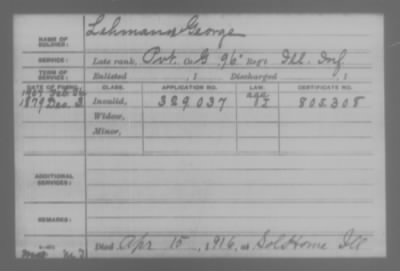 NAME OF SOLDIER: Lehmann George
SERVICE: Late rank, Pvt. Co. G, 96" Reg't Ill. Inf.
TERM OF SERVICE: Enlisted , 1 Discharged , 1
DATE OF FILING. CLASS. APPLICATION NO. LAW. CERTIFICATE NO.
1907 Feb
1879 Dec. 3 Invalid, 329,037 805308
Widow,
Minor,
ADDITIONAL SERVICES:
REMARKS:
Died Apr 15, 1916, at Sol Home Ill